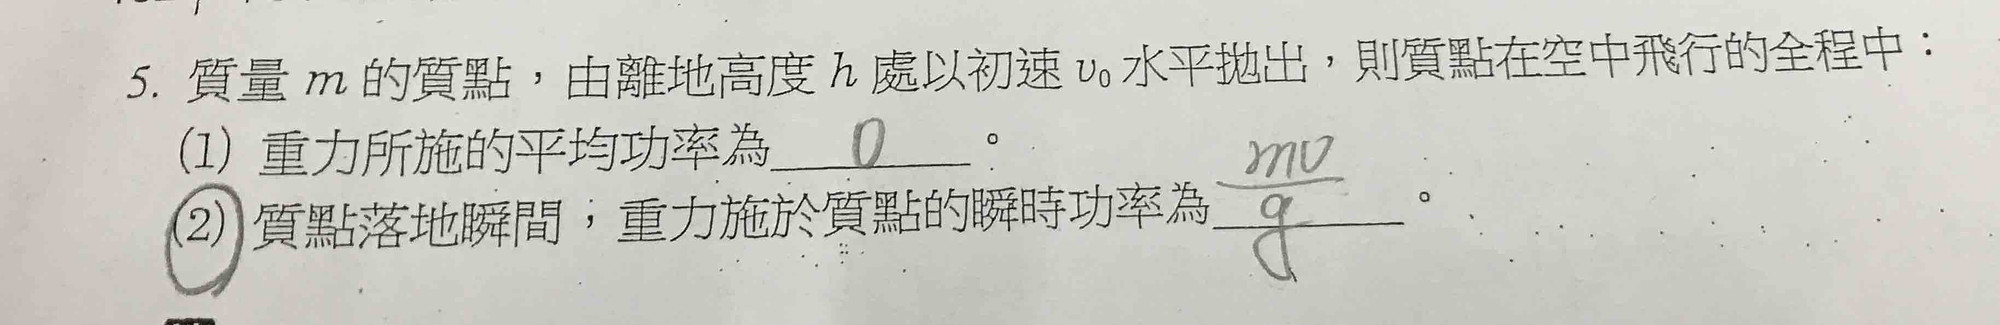 5. 質量 m 的質點，由離地高度 h 處以初速 v₀ 水平拋出，則質點在空中飛行的全程中：
(1) 重力所施的平均功率為 0 。
(2) 質點落地瞬間；重力施於質點的瞬時功率為 mv/g 。